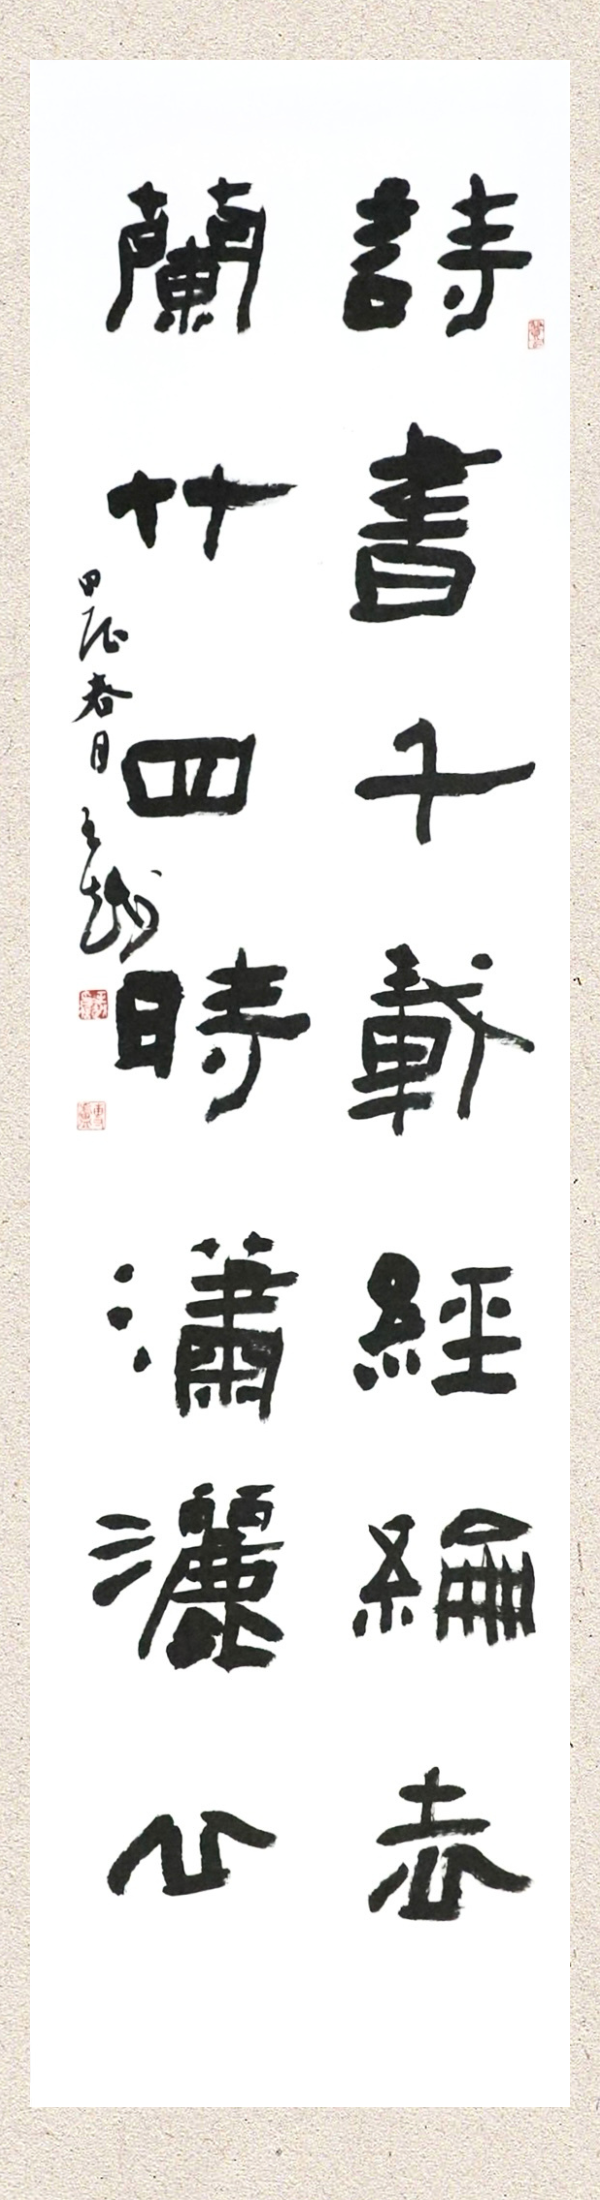 詩書千載經綸志
蘭竹四時瀟灑心
甲辰春月